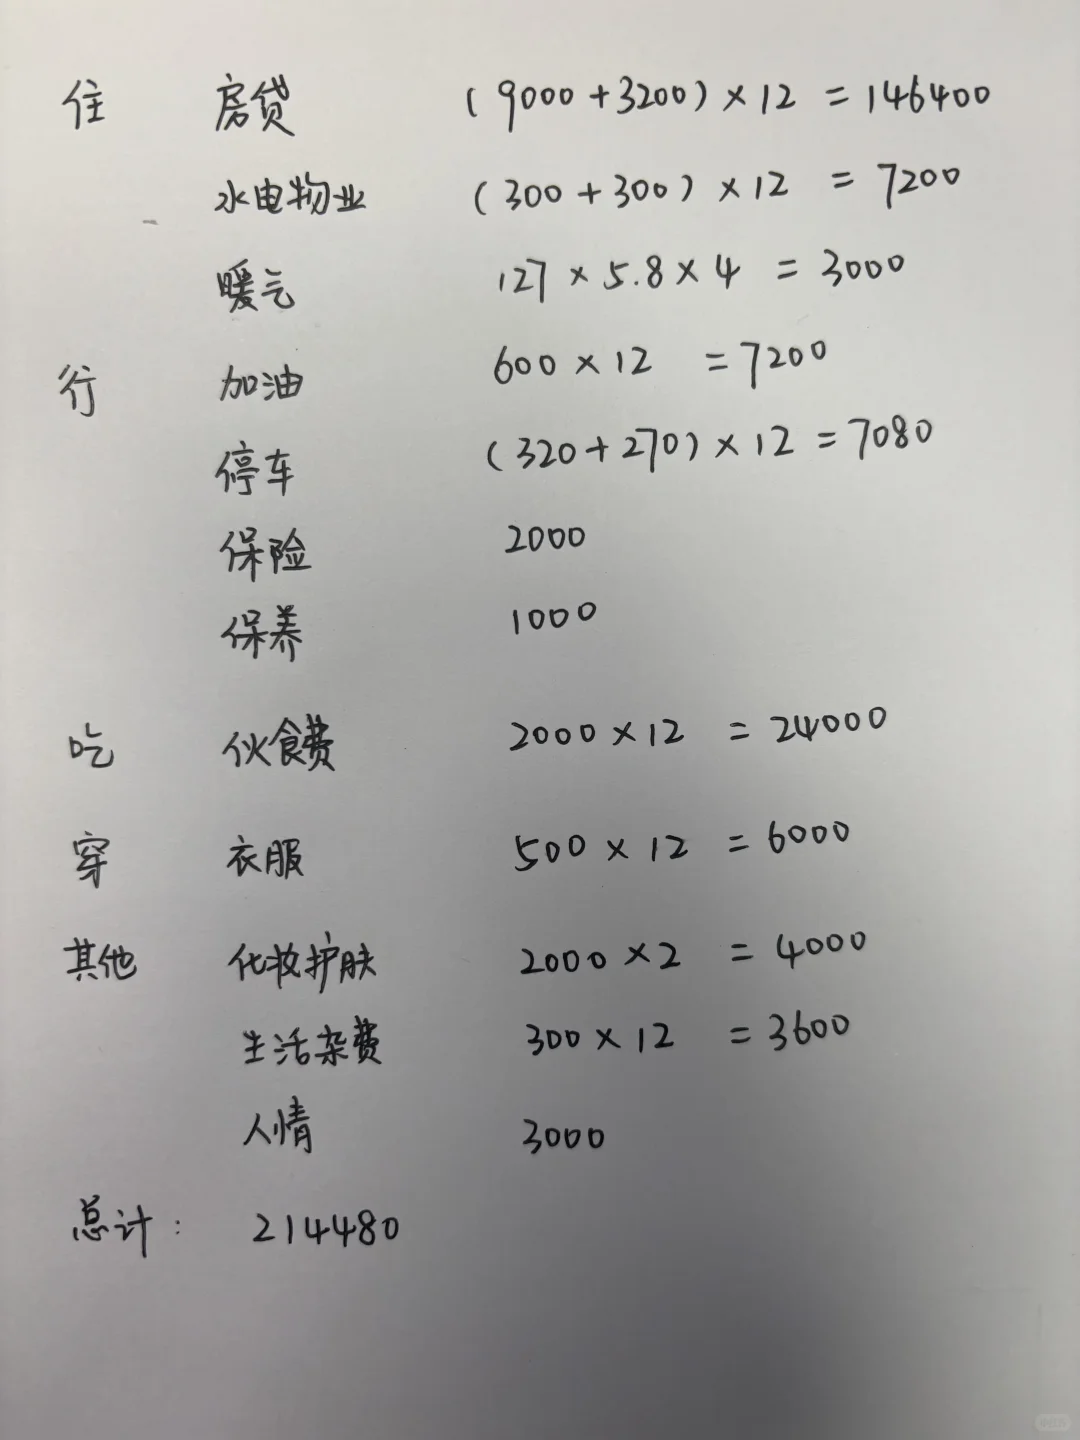 住 房贷 (9000+3200)×12 = 146400
水电物业 (300+300)×12 = 7200
暖气 127×5.8×4 = 3000
行 加油 600×12 = 7200
停车 (320+270)×12 = 7080
保险 2000
保养 1000
吃 伙食费 2000×12 = 24000
穿 衣服 500×12 = 6000
其他 化妆护肤 2000×2 = 4000
生活杂费 300×12 = 3600
人情 3000
总计: 214480